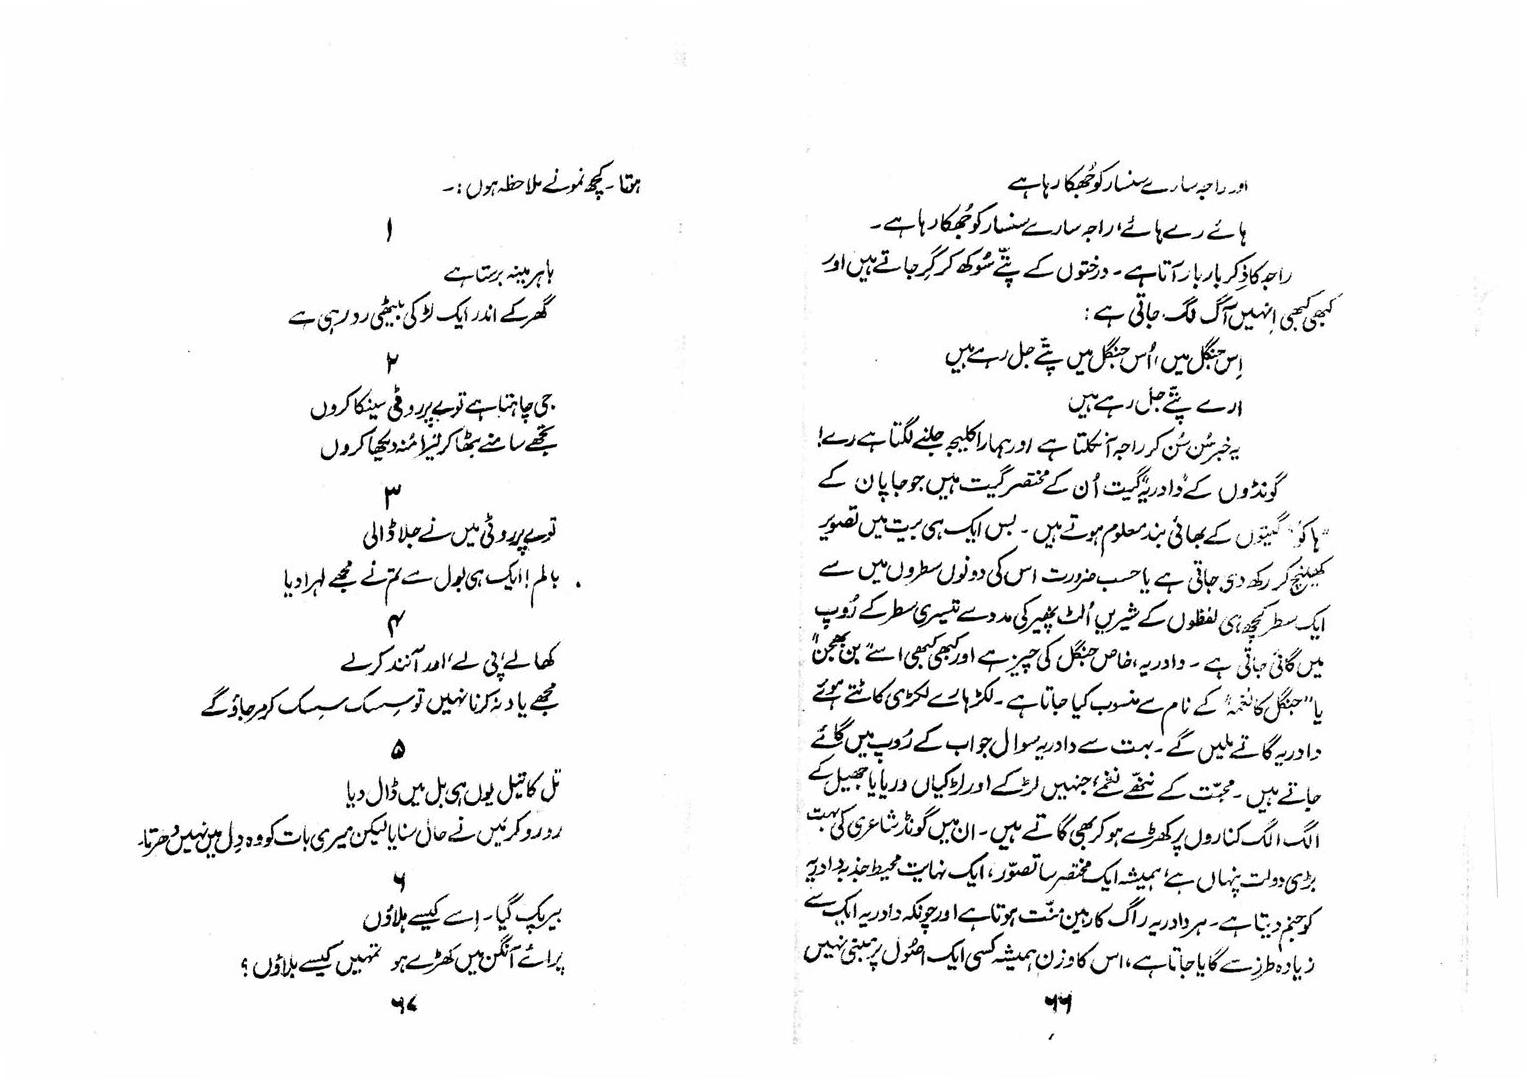 اور راجہ سارے سنسار کو جُھکا رہا ہے
ہائے رے ہائے، راجہ سارے سنسار کو جُھکا رہا ہے۔
راجہ کا ذِکر بار بار آتا ہے۔ درختوں کے پتّے سُوکھ کر گر جاتے ہیں اور
کبھی کبھی اِنہیں آگ لگ جاتی ہے :
اِس جنگل میں، اُس جنگل میں پتّے جل رہے ہیں
ارے پتّے جل رہے ہیں
یہ خبر سُن سُن کر راجہ آ نکلتا ہے اور ہمارا کلیجہ جلنے لگتا ہے رے!
گونڈوں کے "دادریہ" گیت اُن کے مختصر گیت ہیں جو جاپان کے
"ہاکو" گیتوں کے بھائی بند معلوم ہوتے ہیں۔ بس ایک ہی بیت میں تصویر
کھینچ کر رکھ دی جاتی ہے یا حسب ضرورت اس کی دونوں سطروں میں سے
ایک سطر کچھ ہی لفظوں کے شیریں اُلٹ پھیر کی مدد سے تیسری سطر کے رُوپ
میں گائی جاتی ہے۔ دادریہ، خاص جنگل کی چیز ہے اور کبھی کبھی اسے "بن بھجن"
یا "جنگل کا نغمہ" کے نام سے منسوب کیا جاتا ہے۔ لکڑہارے لکڑی کاٹتے ہوئے
دادریہ گاتے ملیں گے۔ بہت سے دادریہ سوال جواب کے رُوپ میں گائے
جاتے ہیں۔ محبّت کے ننھّے نغمے، جنہیں لڑکے اور لڑکیاں دریا یا جھیل کے
الگ الگ کناروں پر کھڑے ہو کر بھی گاتے ہیں۔ ان میں گونڈ شاعری کی بہت
بڑی دولت پنہاں ہے، ہمیشہ ایک مختصر سا تصوّر، ایک نہایت محیط جذبہ دادریہ
کو جنم دیتا ہے۔ ہر دادریہ راگ کا رہین منّت ہوتا ہے اور چونکہ دادریہ ایک سے
زیادہ طرز سے گایا جاتا ہے، اس کا وزن ہمیشہ کسی ایک اصُول پر مبنی نہیں
۶۶
ہوتا۔ کچھ نمونے ملاحظہ ہوں :۔
۱
باہر مینہ برستا ہے
گھر کے اندر ایک لڑکی بیٹھی رو رہی ہے
۲
جی چاہتا ہے توے پر روٹی سینکا کروں
تجھے سامنے بٹھا کر تیرا مُنہ دیکھا کروں
۳
توے پر روٹی میں نے جلا ڈالی
بالم! ایک ہی بول سے تم نے مجھے لہرا دیا
۴
کھا لے، پی لے، اور آنند کر لے
مجھے یاد نہ کرنا نہیں تو سِسک سِسک کر مر جاؤ گے
۵
تل کا تیل یوں ہی بل میں ڈال دیا
رو رو کر مَیں نے حال سنایا لیکن میری بات کو وہ دِل میں نہیں دھرتا۔
۶
بیر پک گیا۔ اِسے کیسے ہلاؤں
پرائے آنگن میں کھڑے ہو تمہیں کیسے بلاؤں؟
۶۷